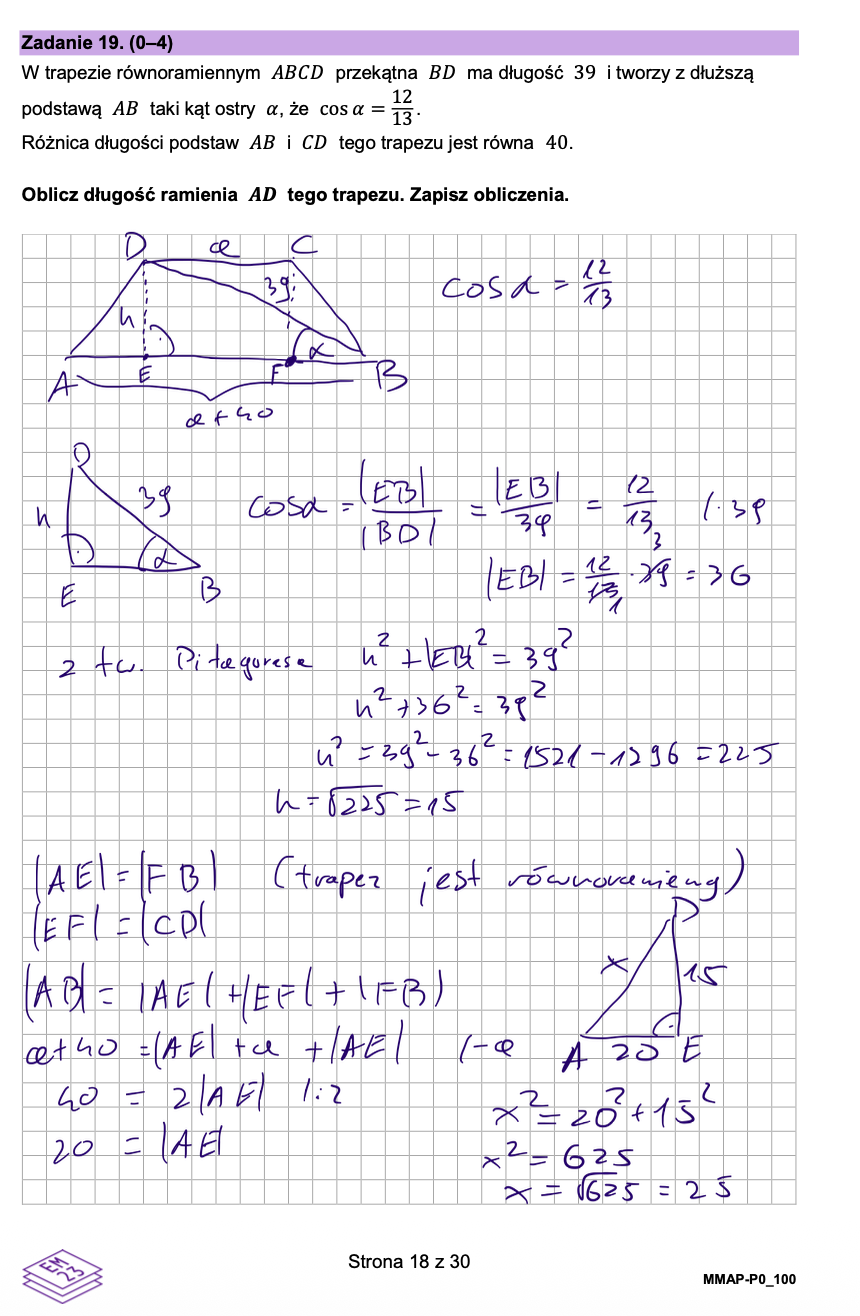 Zadanie 19. (0–4)
W trapezie równoramiennym ABCD przekątna BD ma długość 39 i tworzy z dłuższą
podstawą AB taki kąt ostry α, że cos α = 12/13.
Różnica długości podstaw AB i CD tego trapezu jest równa 40.
Oblicz długość ramienia AD tego trapezu. Zapisz obliczenia.
D a C
39
h
α
A E F B
a + 40
cos α = 12/13
D
h 39
α
E B
cos α = |EB|/|BD| = |EB|/39 = 12/13 /·39
|EB| = 12/13 · 39 = 36
3
1
z tw. Pitagorasa h² + |EB|² = 39²
h² + 36² = 39²
h² = 39² - 36² = 1521 - 1296 = 225
h = √225 = 15
|AE| = |FB| (trapez jest równoramienny)
|EF| = |CD|
|AB| = |AE| + |EF| + |FB|
a + 40 = |AE| + a + |AE| /-a
40 = 2|AE| /:2
20 = |AE|
D
x 15
A 20 E
x² = 20² + 15²
x² = 625
x = √625 = 25
EM
23
Strona 18 z 30
MMAP-P0_100